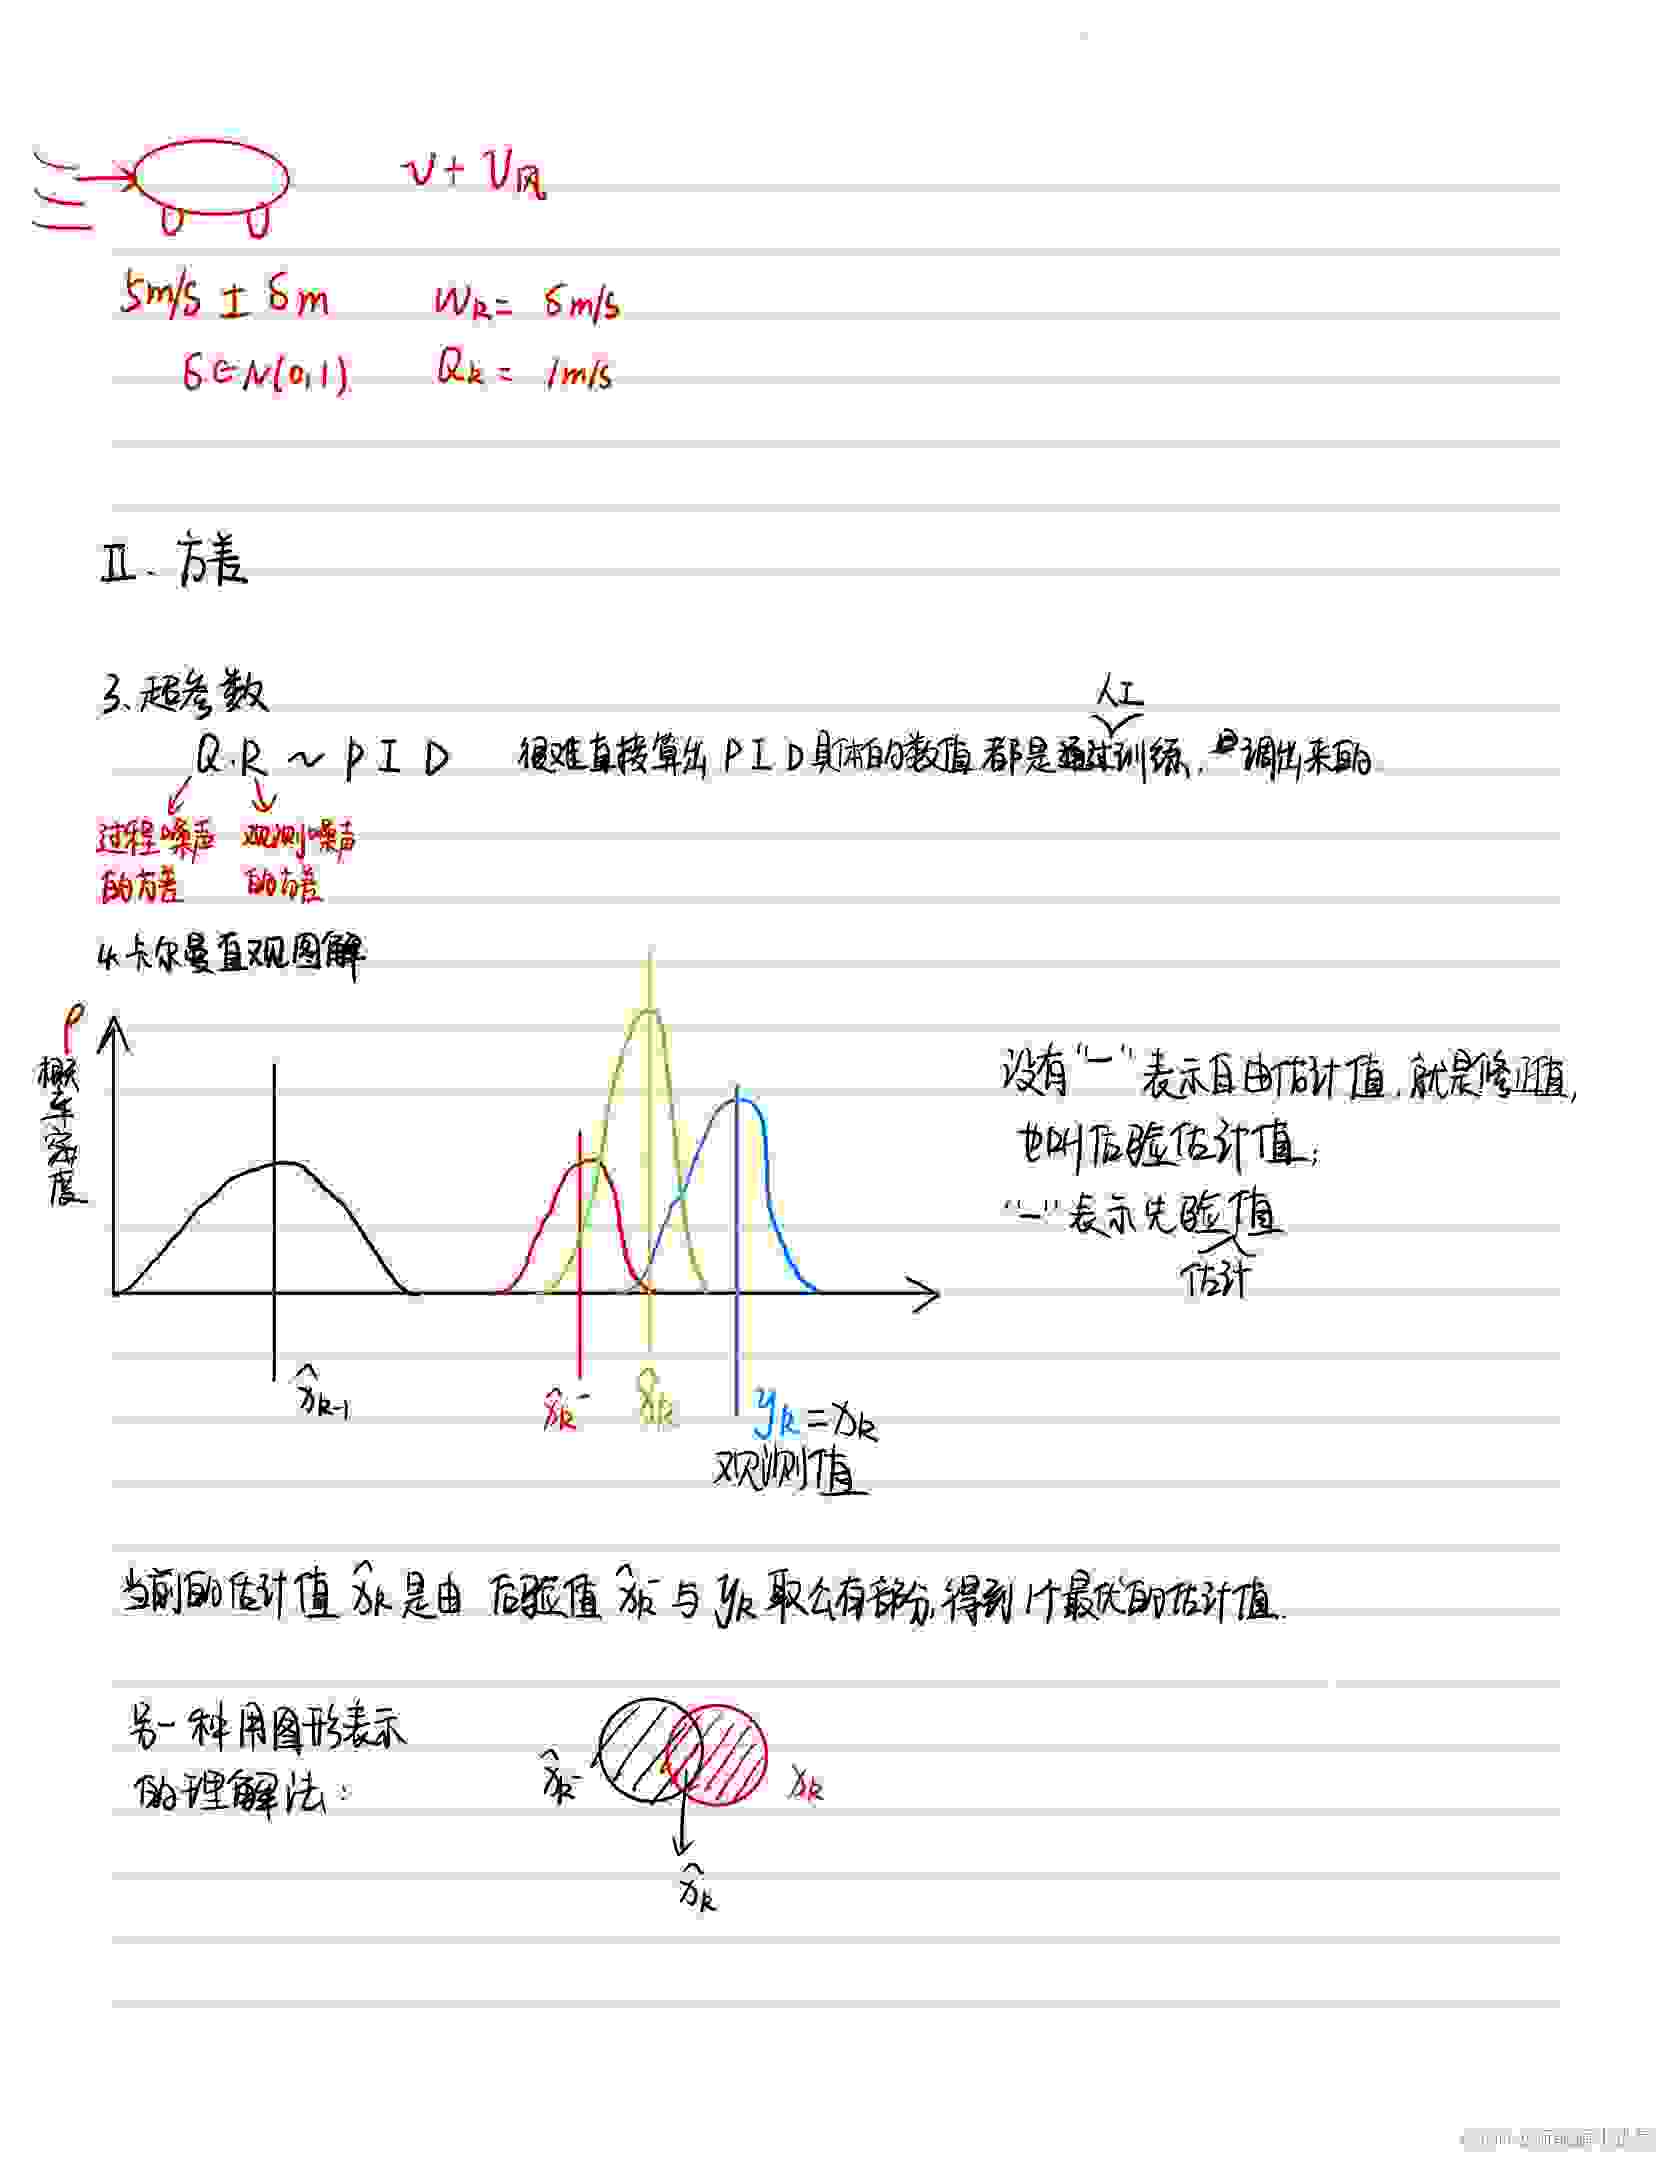 v + v风
5m/s ± δm    Wk = δm/s
δ∈N(0,1)    Qk = 1m/s
II、方差
3、超参数
人工
Q.R ~ P I D    很难直接算出 P I D 具体的数值 都是通过训练, 调出来的
过程噪声    观测噪声
的方差    的方差
4.卡尔曼直观图解
P
概率密度
没有“—”表示自由估计值,就是修正值,
也叫后验估计值;
“—”表示先验值
估计
x̂k-1    x̂k⁻    x̂k    yk = xk
观测值
当前的估计值 x̂k 是由 后验值 x̂k⁻ 与 yk 取公有部分,得到1个最优的估计值.
另一种用图形表示
的理解法:
x̂k⁻    xk
x̂k